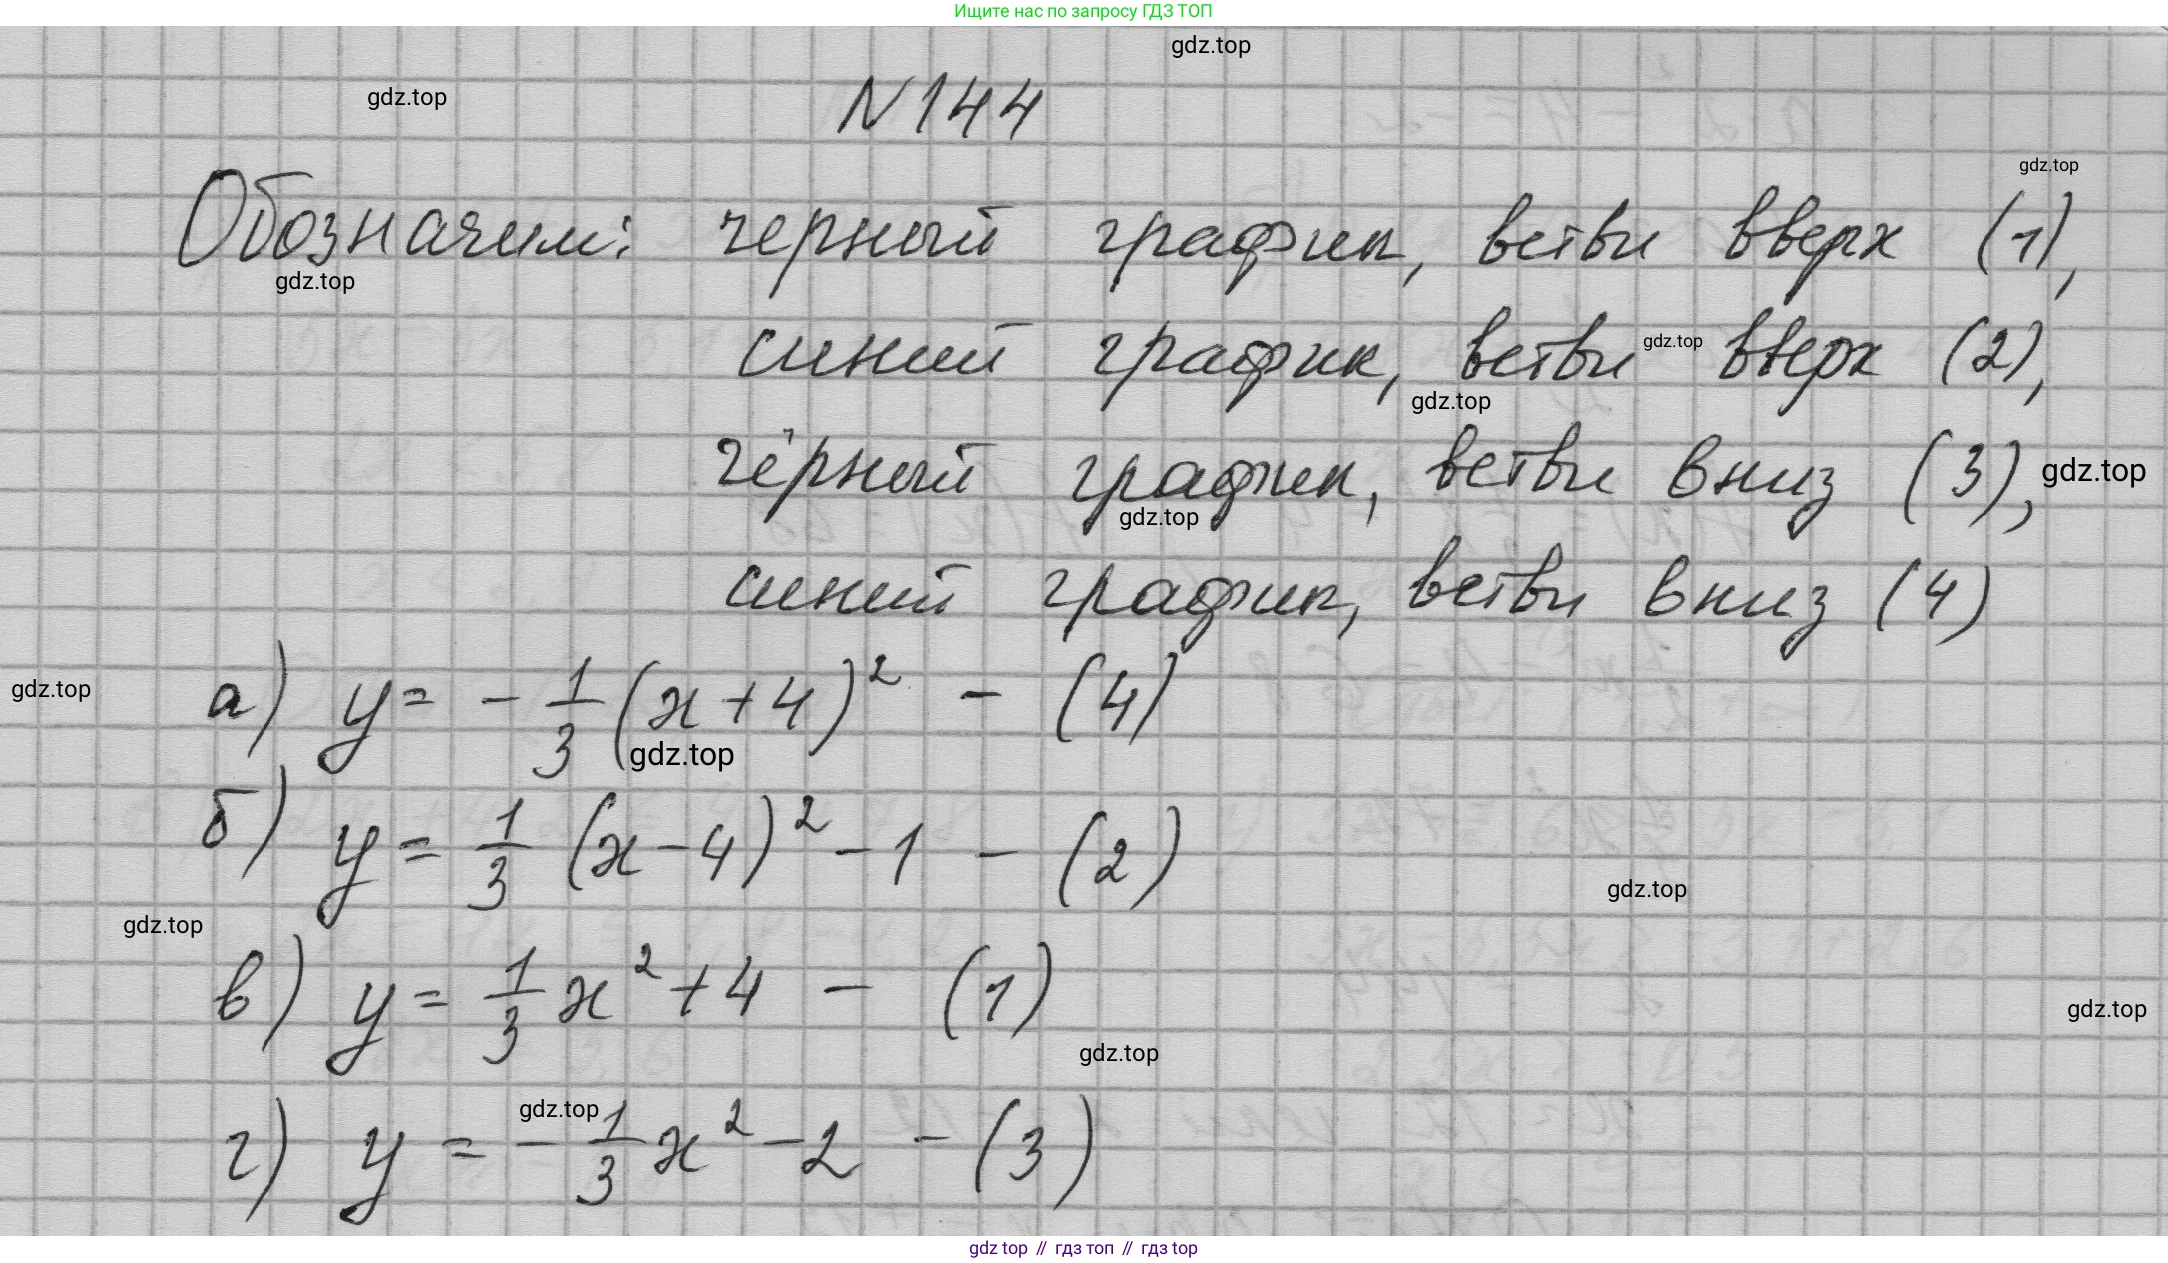 Ищите нас по запросу ГДЗ ТОП
gdz.top
gdz.top
N 144
gdz.top
Обозначим: черный график, ветви вверх (1),
gdz.top
синий график, ветви вверх (2),
gdz.top
gdz.top
чёрный график, ветви вниз (3),
gdz.top
gdz.top
синий график, ветви вниз (4)
а) y = - 1/3 (x+4)² - (4)
gdz.top
gdz.top
б) y = 1/3 (x-4)² - 1 - (2)
gdz.top
gdz.top
в) y = 1/3 x² + 4 - (1)
gdz.top
gdz.top
gdz.top
г) y = - 1/3 x² - 2 - (3)
gdz top // гдз топ // гдз top